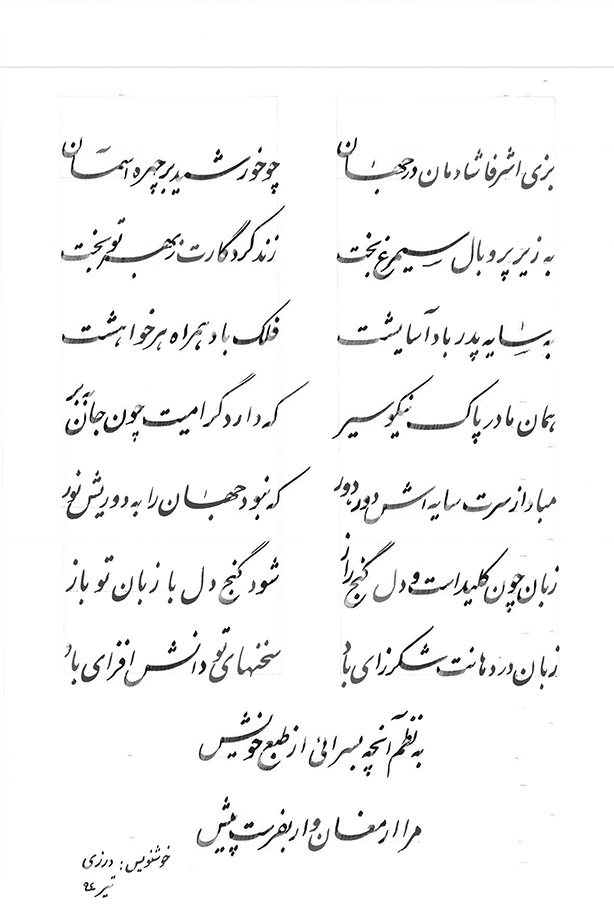 بزی اشرفا شادمان در جهان    چو خورشید بر چهره آسمان
به زیر پر و بال سیمرغ بخت    زند کردگارت ز بهر تو تخت
به سایه پدر باد آسایشت    فلک باد همراه هر خواهشت
همان مادر پاک نیکو سیر    که دارد گرامیت چون جان به بر
مباد از سرت سایه اش دور دور    که نبود جهان را به دوریش نور
زبان چون کلید است و دل گنج راز    شود گنج دل با زبان تو باز
زبان در دهانت شکر زای باد    سخنهای تو دانش افزای باد
به نظم آنچه بسرائی از طبع خویش
مرا ارمغان وار بفرست پیش
خوشنویس: درزی
تیر ۹۴